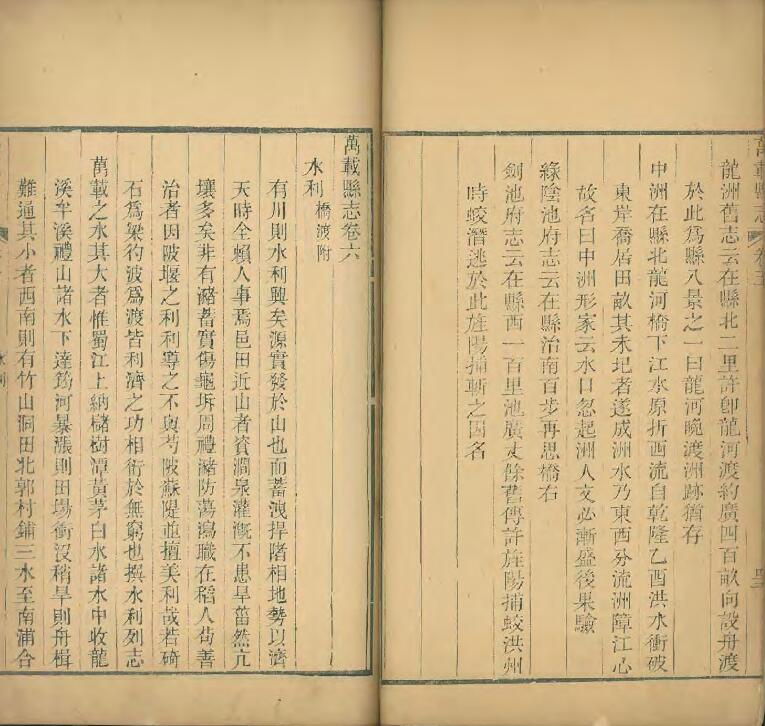 萬載縣志 卷五
龍洲舊志云在縣北二里許卽龍河渡約廣四百畝向設舟渡
於此爲縣八景之一曰龍河晚渡洲跡猶存
中洲在縣北龍河橋下江水原折西流自乾隆乙酉洪水衝破
東岸喬居田畝其未圮者遂成洲水乃東西分流洲障江心
故名曰中洲形家云水口忽起洲人文必漸盛後果驗
綠陰池府志云在縣治南百步再思橋右
劍池府志云在縣西一百里池廣丈餘舊傳許旌陽捕蛟洪州
時蛟潛逃於此旌陽捕斬之因名
萬載縣志卷六
水利 橋渡附
有川則水利興矣源實發於山也而蓄洩捍隄相地勢以濟
天時全賴人事焉邑田近山者資澗泉灌漑不患旱菑然亢
壤多矣非有瀦蓄實傷龜坼周禮瀦防蕩瀉職在稻人茍善
治者因陂堰之利利導之不與芍陂蘇隄並擅美利哉若碕
石爲梁彴波爲渡皆利濟之功相衍於無窮也撰水利列志
萬載之水其大者惟蜀江上納櫧樹潭黃茅白水諸水中收龍
溪牟溪禮山諸水下達筠河暴漲則田場衝沒稍旱則舟楫
難通其小者西南則有竹山洞田北郭村鋪三水至南浦合
水利